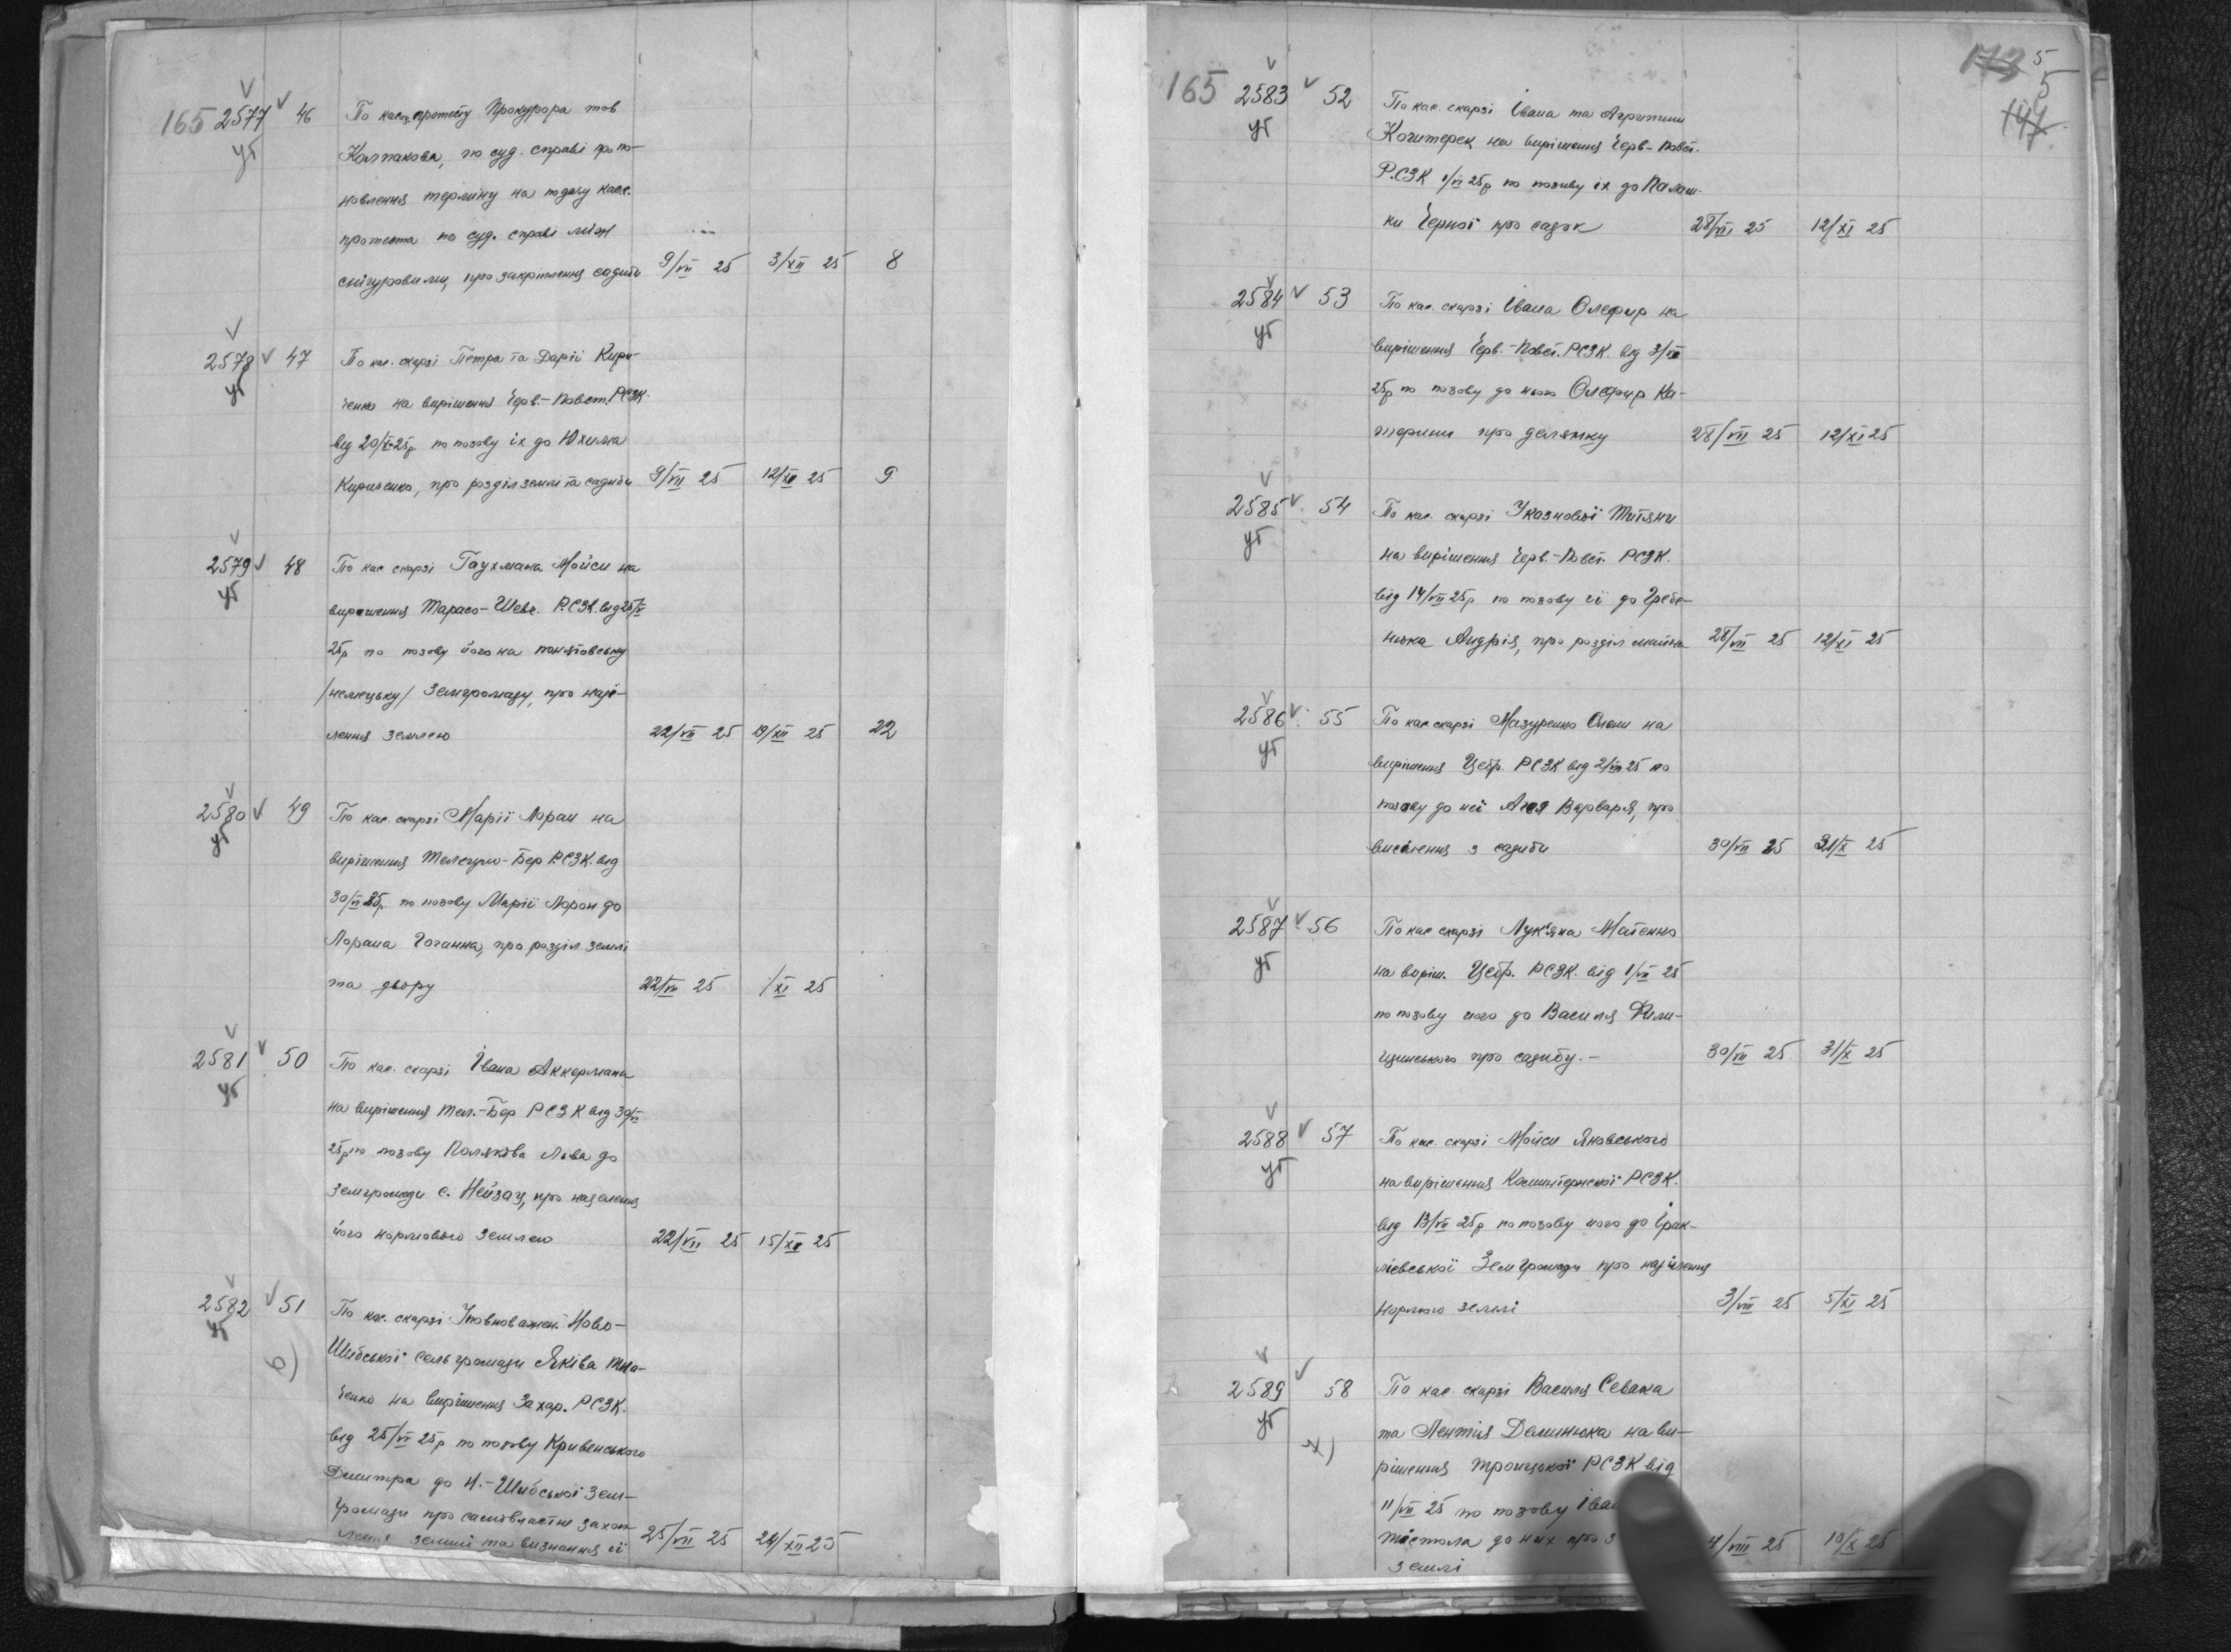 165 2577 46 По касац. протесту Прокурора тов
уг
Колпакова, по суд. справі про по-
новлення терміну на подачу касс.
протеста по суд. справі між
снігуровими, про закріплення садиби 9/VII 25 3/XII 25 8
2578 47 По кас. скарзі Петра та Дарії Кири-
уг
ченко на вирішення Черв.-Повст. РСЗК.
від 20/ 25р по позову іх до Юхима
Кириченко, про розділ землі та садиби 9/VII 25 12/XII 25 9
2579 48 По кас скарзі Гаухмана Мойси на
уг
вирішення Тарасо-Шевч. РСЗК. від 25/
25р по позову його на понятовську
/немецьку/ Земгромаду, про наді-
лення землею 22/VII 25 19/XII 25 22
2580 49 По кас. скарзі Марії Лоран на
уг
вирішення Телегуло-Бер РСЗК. від
30/VI 25р. по позову Марії Лоран до
Лорана Гоганна, про розділ землі
та двору 22/VII 25 1/XI 25
2581 50 По кас. скарзі Івана Аккермана
уг
на вирішення Тел.-Бер РСЗК від 30/VI
25р по позову Полякова Льва до
Земгромади с. Нейзац, про наделення
його нормовою землею 22/VII 25 15/XII 25
2582 51 По кас. скарзі Уповноважен. Ново-
уг
б)
Шибської сельгромади Яківа Тка-
ченко на вирішення Захар. РСЗК.
від 25/VI 25р по позову Кривенського
Демитра до Н.-Шибської Зем-
громади про самовластне захоп-
лення землі та визнання її 25/VII 25 24/XII 25
173 5
5
147
165 2583 52 По кас. скарзі Івана та Агритини
уг
Кочитерек на вирішення Черв-Повст.
Р.СЗК 1/VI 25р по позиву іх до Палаш-
ки Черної про садок 28/VII 25 12/XI 25
2584 53 По кас. скарзі Івана Олефир на
уг
вирішення Черв.-Повст. РСЗК. від 3/VII
25р по позову до нього Олефир Ка-
терини про делянку 28/VII 25 12/XI 25
2585 54 По кас. скарзі Указнової Титяни
уг
на вирішення Черв.-Повст. РСЗК.
від 14/VII 25р по позову її до Гребе-
нюка Андрія, про розділ майна 28/VII 25 12/XI 25
2586 55 По кас скарзі Мазуренко Олени на
уг
вирішення Цебр. РСЗК від 2/VII 25 по
позову до неї Варваря, про
виселення з садиби 30/VII 25 31/X 25
2587 56 По кас скарзі Лук'яна Матенко
уг
на виріш. Цебр. РСЗК. від 1/VII 25
по позову його до Василя Фили-
щинського про садибу.- 30/VII 25 31/X 25
2588 57 По кас. скарзі Мойси Яновського
уг
на вирішення Комінтернської РСЗК.
від 13/VII 25р по позову його до Ірак-
лієвської Земгромади про наділення
нормою землі 3/VIII 25 5/XI 25
2589 58 По кас. скарзі Василя Севака
уг
та Лентія Деминюка на ви-
рішення Троицької РСЗК від
11/VII 25 по позову Іва
до них про з 4/VIII 25 10/X 25
землі